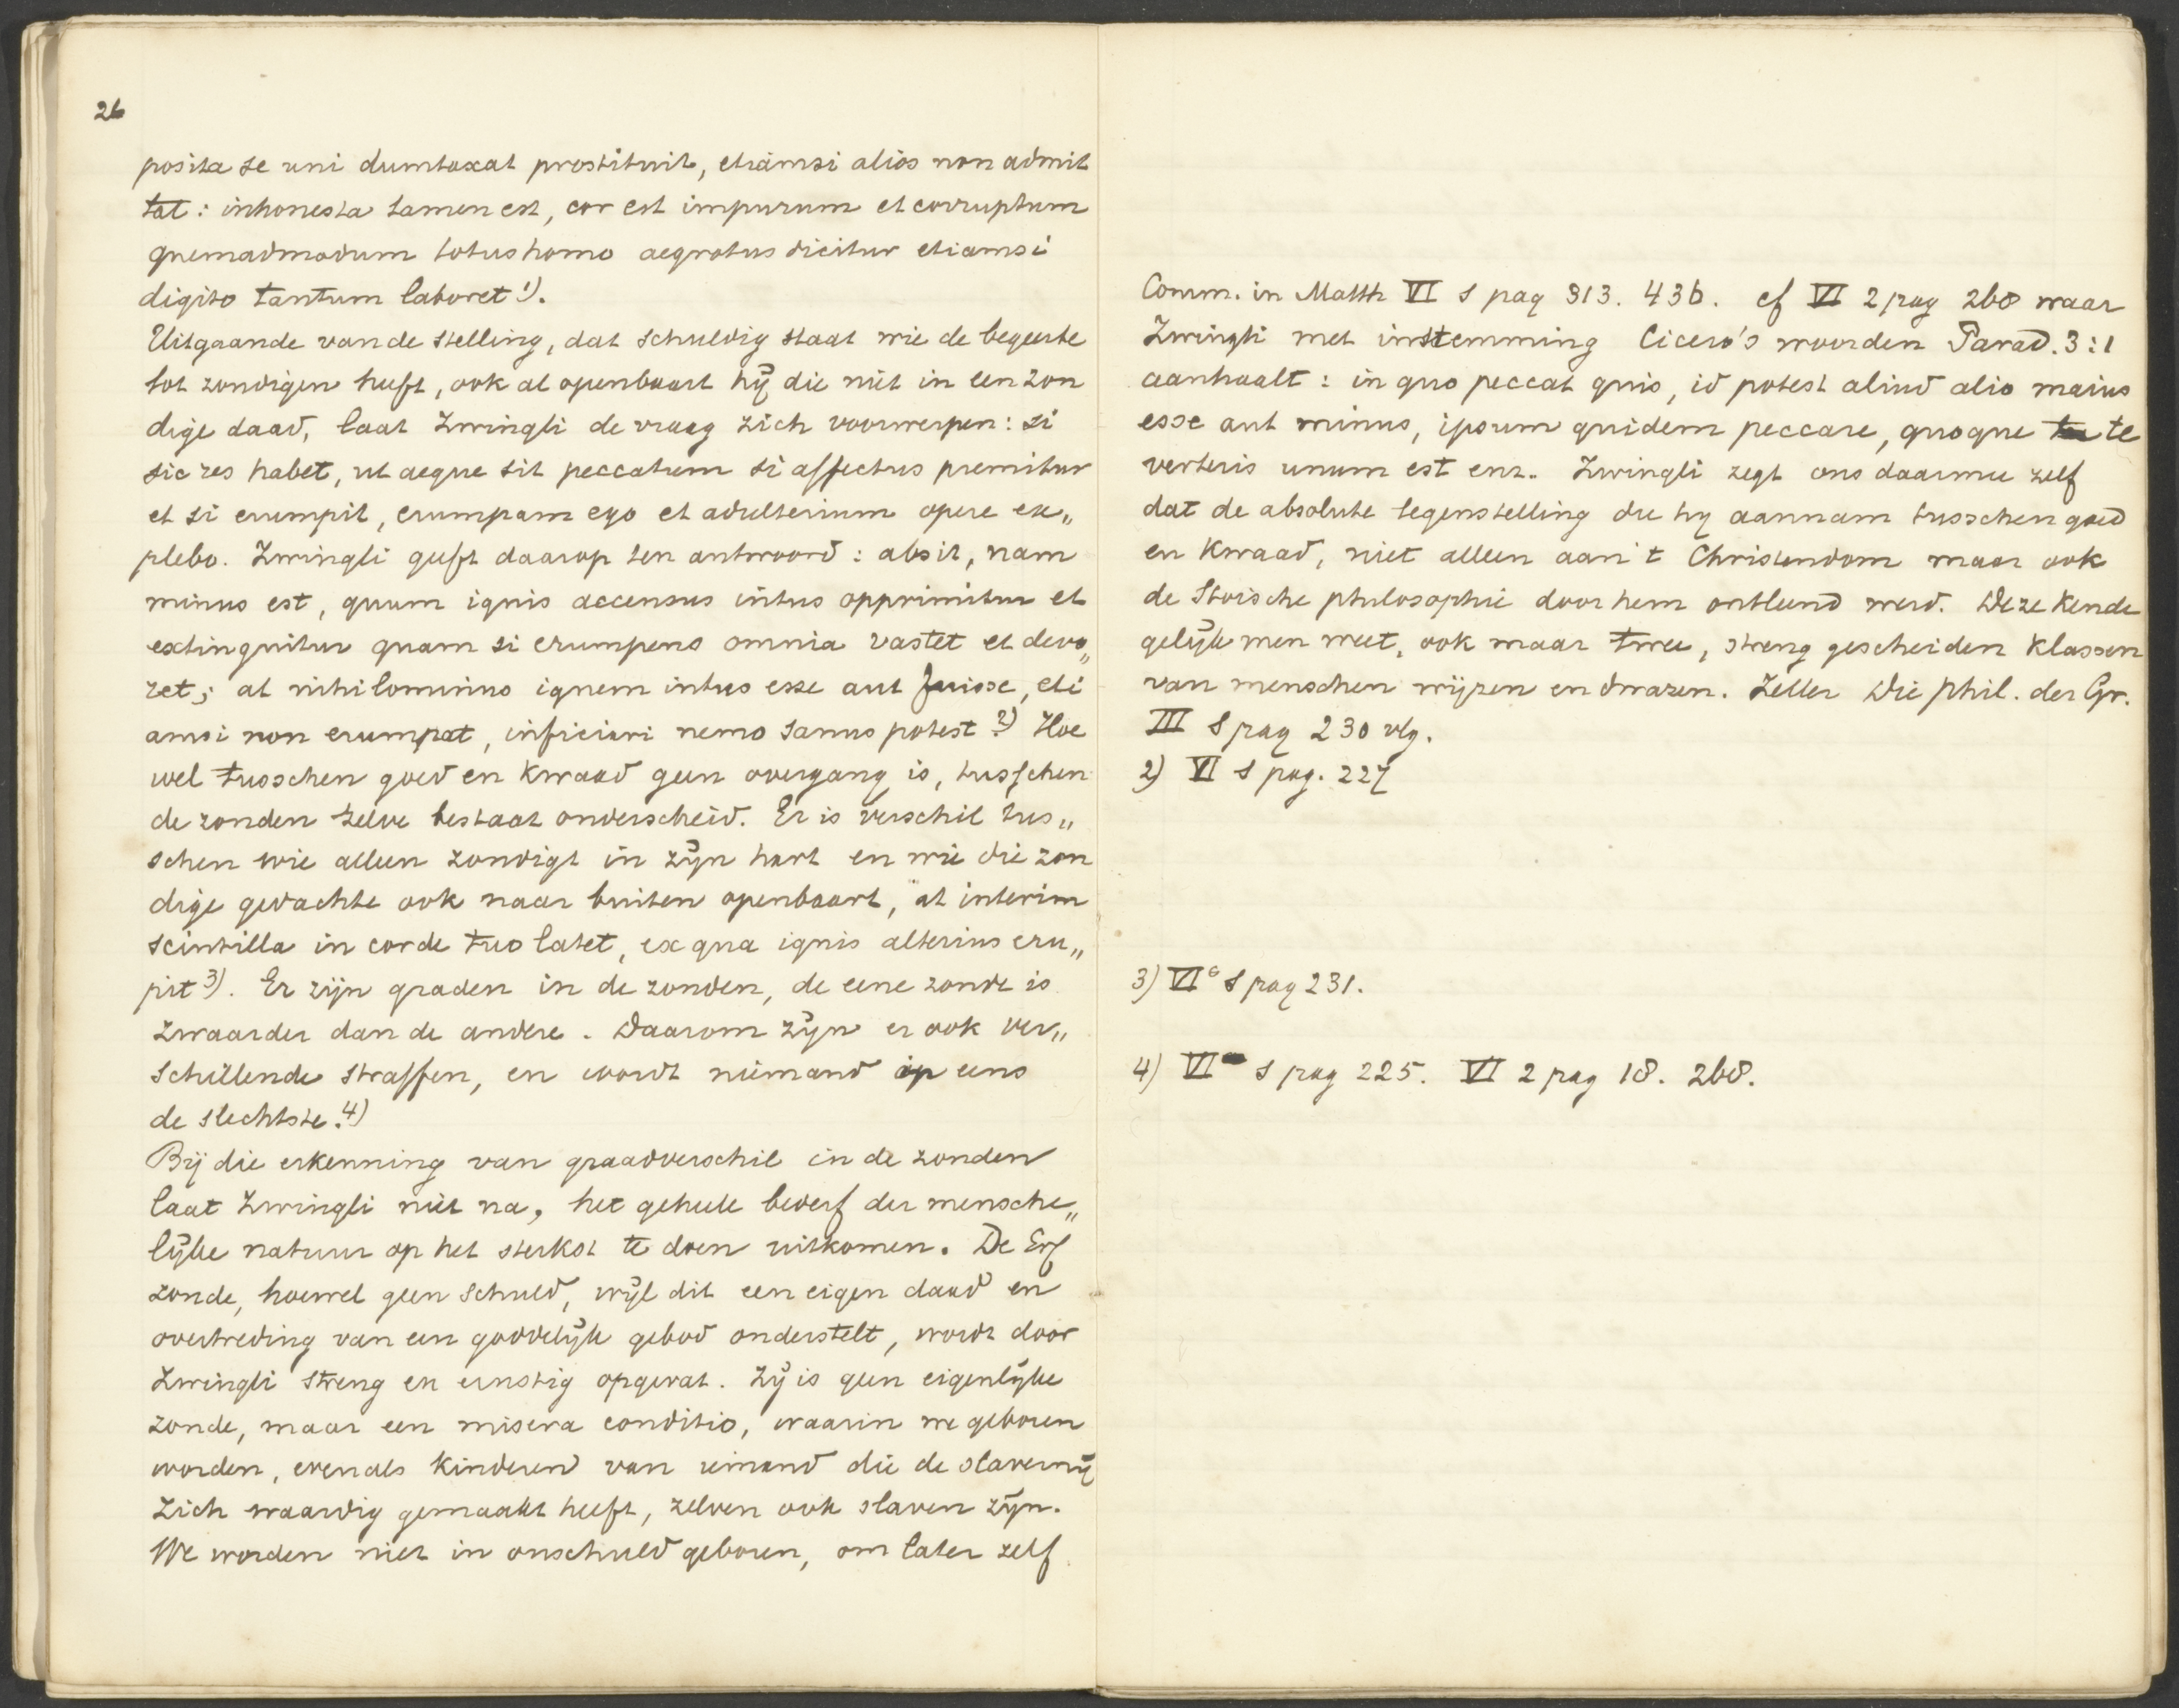 26
posita se uni dumtaxat prostituit, etiamsi alios non admit
tat: inhonesta tamen est, cor est impurum et corruptum
quemadmodum totus homo aegrotus dicitur etiamsi
digito tantum laboret 1).
Uitgaande van de stelling, dat schuldig staat wie de begeerte
tot zondigen heeft, ook al openbaart hij die niet in een zon
dige daad, laat Zwingli de vraag zich voorwerpen: si
sic res habet, ut aeque sit peccatum si affectus premitur
et si erumpit, erumpam ego et adulterium opere ex„
plebo. Zwingli geeft daarop ten antwoord: absit, nam
minus est, quum ignis accensus intus opprimitur et
extinguitur quam si erumpens omnia vastet et devo„
ret; at nihilominus ignem intus esse aut fuisse, eti
amsi non erumpat, inficiari nemo sanus potest 2) Hoe
wel tusschen goed en kwaad geen overgang is, tusschen
de zonden zelve bestaat onderscheid. Er is verschil tus„
schen wie alleen zondigt in zijn hart en wie die zon
dige gedachte ook naar buiten openbaart, at interim
scintilla in corde tuo latet, ex qua ignis alterius eru„
pit 3). Er zijn graden in de zonden, de eene zonde is
zwaarder dan de andere. Daarom zijn er ook ver„
schillende straffen, en wordt niemand op eens
de slechtste. 4)
Bij die erkenning van graadverschil in de zonden
laat Zwingli niet na, het geheele bederf der mensche„
lijke natuur op het sterkst te doen uitkomen. De Erf
zonde, hoewel geen schuld, wijl dit een eigen daad en
overtreding van een goddelijk gebod onderstelt, wordt door
Zwingli streng en ernstig opgevat. Zij is geen eigenlijke
zonde, maar een misera conditio, waarin we geboren
worden, evenals kinderen van iemand die de slavernij
zich waardig gemaakt heeft, zelven ook slaven zijn.
We worden niet in onschuld geboren, om later zelf
Comm. in Matth VI 1 pag 313. 436. cf VI 2 pag 268 waar
Zwingli met instemming Cicero's woorden Parad. 3:1
aanhaalt: in quo peccat quis, id potest aliud alio maius
esse aut minus, ipsum quidem peccare, quoque te
verteris unum est enz. Zwingli zegt ons daarmee zelf
dat de absolute tegenstelling die hij aannam tusschen goed
en kwaad, niet alleen aan 't Christendom maar ook
de Stoische philosophie door hem ontleend werd. Deze kende
gelijk men weet, ook maar twee, streng gescheiden klassen
van menschen wijzen en dwazen. Zeller Die phil. der Gr.
III 1 pag 230 vlg.
2) VI 1 pag. 227
3) VI 1 pag 231.
4) VI 1 pag 225. VI 2 pag 18. 268.